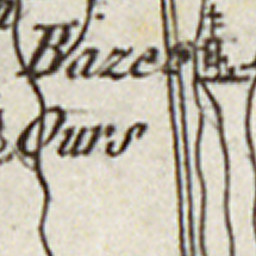 Bazei
Ours